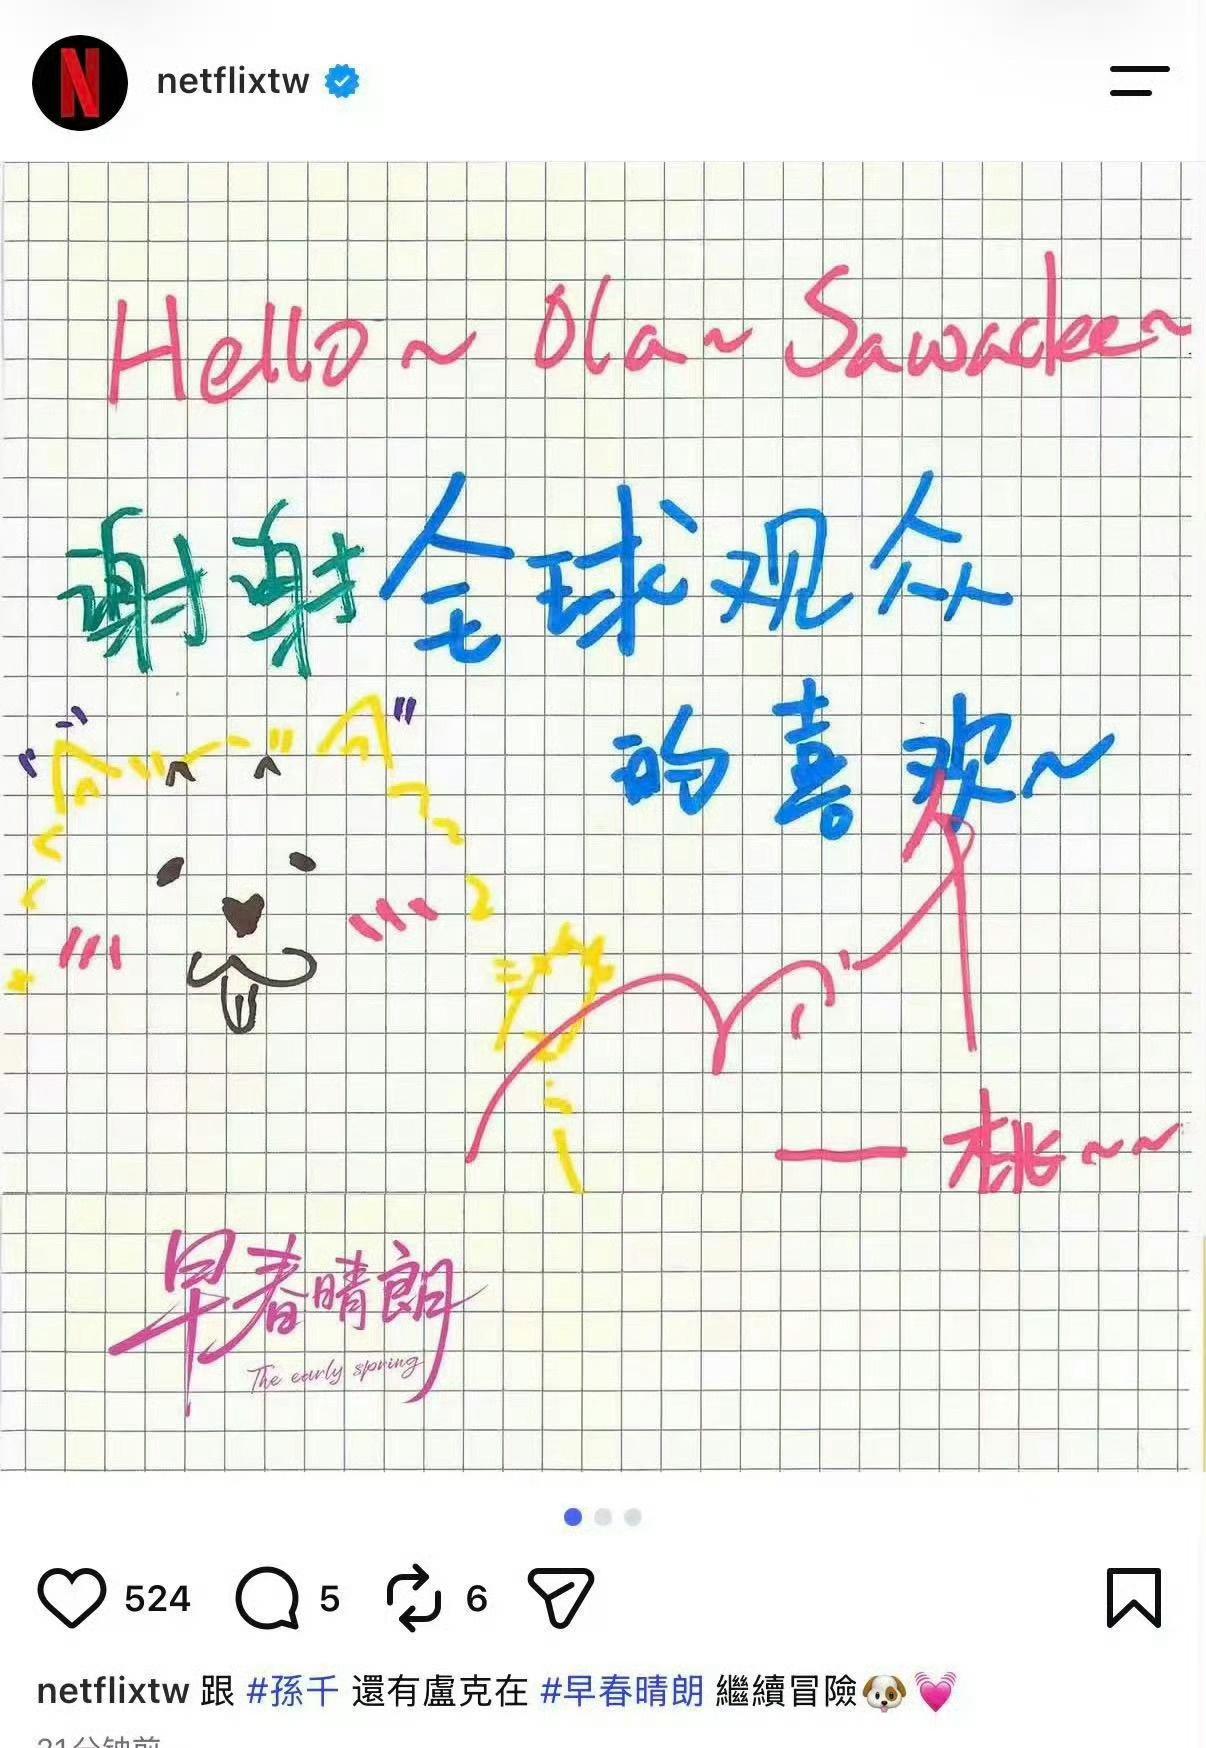 netflixtw
Hello~ Ola~ Sawadee~
谢谢全球观众
的喜欢~
— 桃~~
早春晴朗
The early spring
524 5 6
netflixtw 跟 #孫千 還有盧克在 #早春晴朗 繼續冒險🐶💓
21分钟前